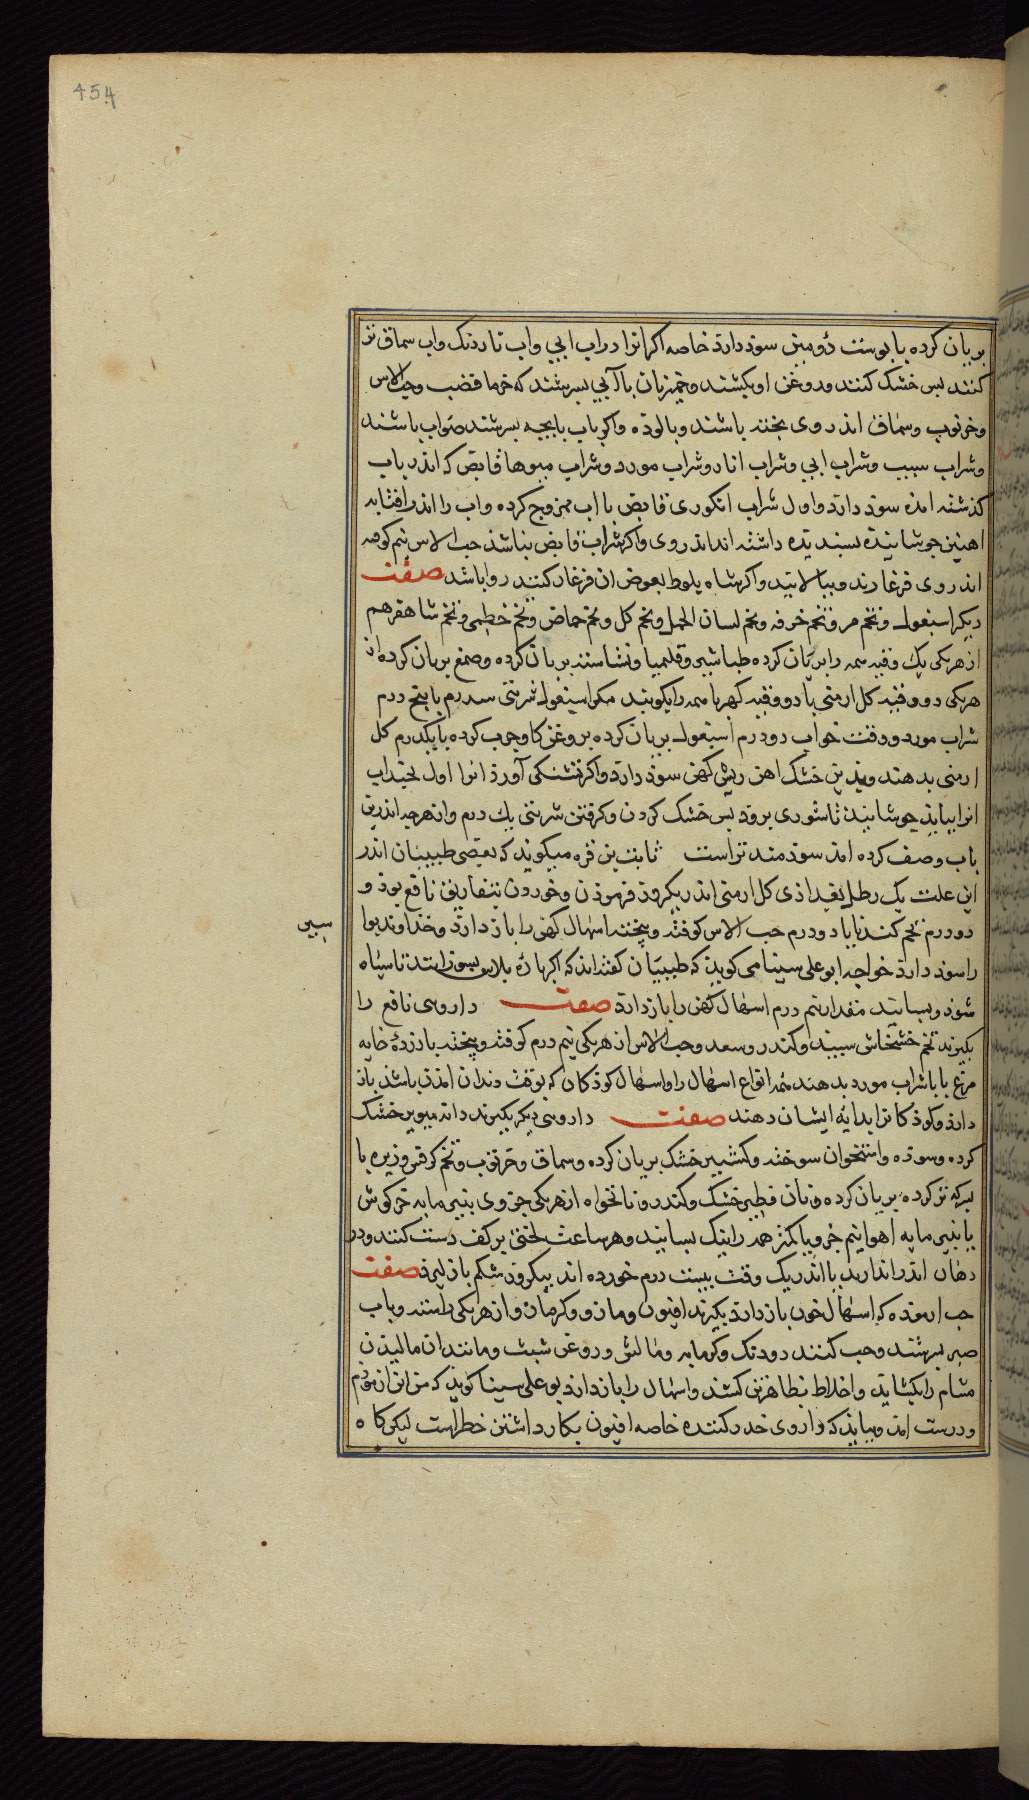 454
بریان کرده با پوست دومین سوذ دارذ خاصه اکر انرا در اب ابی واب نار دنک واب سماق تر
کنند بس خشک کنند و روغن او بکشند وخمیر نان با آب ابی بسرشند که خرما قضب وحب الاس
وخرنوب وسماق اندر وی بخته باشند وبالوده واکر باب بابچه بسرشند صواب باشند
وشراب سیب وشراب ابی وشراب انار وشراب مورد وشراب میوها قابض که اندر باب
کذشته امده سوذ دارذ واول شراب انکوری قابض با اب ممزوج کرده واب را اندر افتابه
اهنین جوشانیده بسندیده داشته اند اندر وی واکر شراب قابض نباشذ حب الاس نیم کوفه
اندر وی فرغارند وببالایند واکر شاه بلوط بعوض ان فرغار کنند روا باشد صفت
دیکر اسبغول وتخم مرو وتخم خرفه وتخم لسان الحمل وتخم کل وتخم حماض وتخم خطمی وتخم شاهفرهم
از هر یکی یک وقیه همه را بریان کرده طباشیر وقلیمیا ونشاسته بریان کرده وصمغ بریان کرده از
هر یکی دو وقیه کل ارمنی با دو وقیه کهربا همه را بکوبند مکر اسبغول شربتی سه درم با بنج درم
شراب مورد ووقت خواب دو درم اسبغول بریان کرده بروغن کاو جرب کرده با یکدرم کل
ارمنی بدهند وبذین خشک اهن ریش کهن سوذ دارذ واکر تشنکی آورذ انرا اول بچند اب
انرا بباید جوشانیذ تا شوری برود بس خشک کردن وکرفتن شربتی یک درم وانهر چه اندرین
باب وصف کرده امد سوذمند تراست ثابت بن قره میکویذ که بعضی طبیبان اندر
این علت یک رطل بغدادی کل ارمنی اندر یکروز فرموذن وخوردن بتفاریق نافع بوذ و
دو درم تخم کندنا با دو درم حب الاس کوفته وبیخته اسهال کهن را باز دارذ وخذاوند بوا
سیر
را سوذ دارذ خواجه ابو علی سینا می کویذ که طبیبان کفته اند که اکر پاره پلاس بسوزانند تا سیاه
شود وبسایند مقدار نیم درم اسهال کهن را باز دارذ صفت داروهی نافع را
بکیرند تخم خشخاش سبید وکندر وسعد وحب الاس از هر یکی نیم درم کوفته وبیخته با زرده خایه
مرغ یا با شراب مورد بدهند همه انواع اسهال را واسهال کوذکان که بوقت دندان امدن باشذ باز
دارذ وکوذکانرا بدایه ایشان دهند صفت داروهی دیکر بکیرند دانه میویز خشک
کرده وسوده واستخوان سوخته وکشنیز خشک بریان کرده وسماق وخرنوب وتخم کرفس وزیره با
سرکه تر کرده بریان کرده ونان فطیر خشک وکندر ونانخواه از هر یکی جزوی بنیر مایه خرکوش
یا بنیر مایه اهو نیم جزو یا کمتر همه را نیک بسایند وهر ساعت لختی بر کف دست کنند ودر
دهان اندر اندازند یا اندر یک وقت بیست درم خورده اند بیکروز شکم باز کیرذ صفت
حب ازموده که اسهال خون باز دارذ بکیرند افیون ومازو وکزمازو از هر یکی راسته وباب
صبر بسرشند وحب کنند دودنک وکرمابه ومالش وروغن شبث وماننذ ان مالیذن
مسام را بکشایذ واخلاط بظاهر تن کشذ واسهال را باز دارذ بو علی سینا کویذ که من این ازموذم
ودرست امد وببایذ که داروی خدر کننده خاصه افیون بکار داشتن خطر است لیکن کاه